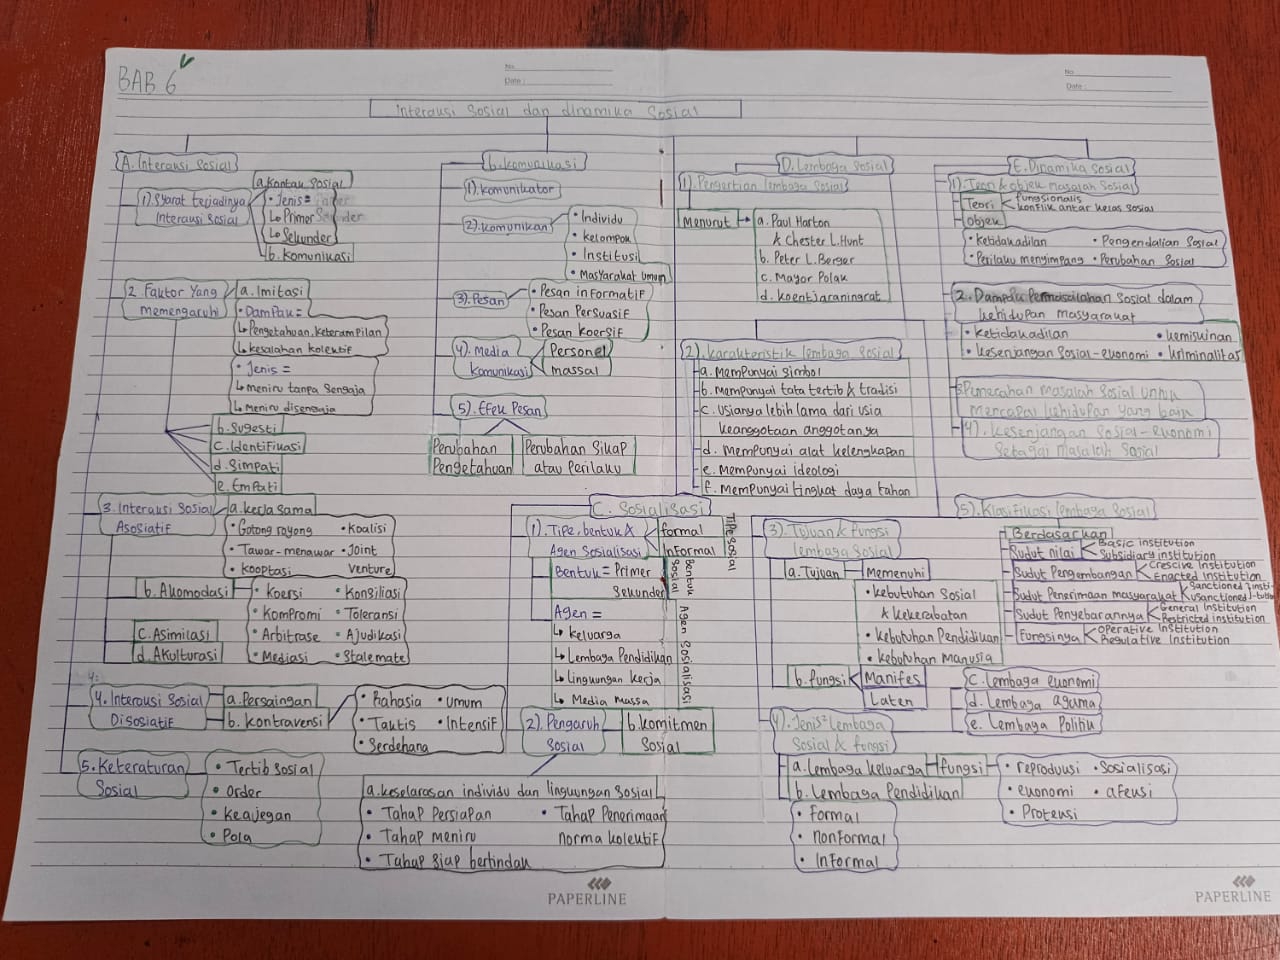 BAB 6
No.
Date:
No.
Date:
Interaksi Sosial dan dinamika Sosial
A. Interaksi Sosial
1) Syarat terjadinya
Interaksi Sosial
a. Kontak Sosial
• Jenis=
↳ Primer
↳ Sekunder
b. Komunikasi
2. Faktor Yang
memengaruhi
a. Imitasi
• Dampak=
↳ Pengetahuan, keterampilan
↳ kesalahan kolektif
• Jenis =
↳ meniru tanpa sengaja
↳ Meniru disengaja
b. Sugesti
c. Identifikasi
d. Simpati
e. Empati
3. Interaksi Sosial
Asosiatif
a. kerja sama
• Gotong royong
• Koalisi
• Tawar-menawar
• Joint
venture
• kooptasi
b. Akomodasi
• Koersi
• Konsiliasi
• Kompromi
• Toleransi
• Arbitrase
• Ajudikasi
• Mediasi
• Stalemate
c. Asimilasi
d. Akulturasi
4:
4. Interaksi Sosial
Disosiatif
a. Persaingan
b. kontravensi
• Rahasia
• umum
• Taktis
• Intensif
• Serdehana
5. Keteraturan
Sosial
• Tertib Sosial
• Order
• Keajegan
• Pola
b. Komunikasi
1). Komunikator
2). Komunikan
• Individu
• kelompok
• Institusi
• Masyarakat umum
3). Pesan
• Pesan informatif
• Pesan Persuasif
• Pesan koersif
4). Media
Komunikasi
Personel
massal
5). Efek Pesan
Perubahan
Pengetahuan
Perubahan Sikap
atau Perilaku
C. Sosialisasi
1). Tipe, bentuk &
Agen Sosialisasi
formal
Informal
Tipe Sosial
Bentuk = Primer
Sekunder
Bentuk Sosial
Agen =
↳ keluarga
↳ Lembaga Pendidikan
↳ Lingkungan kerja
↳ Media massa
Agen Sosialisasi
2). Pengaruh
Sosial
b. komitmen
Sosial
a. keselarasan individu dan lingkungan Sosial
• Tahap Persiapan
• Tahap Penerimaan
norma kolektif
• Tahap meniru
• Tahap siap bertindak
D. Lembaga Sosial
1). Pengertian lembaga Sosial
Menurut
a. Paul Horton
& Chester L. Hunt
b. Peter L. Berger
c. Mayor Polak
d. koentjaraningrat
2). karakteristik lembaga Sosial
a. mempunyai simbol
b. mempunyai tata tertib & tradisi
c. usianya lebih lama dari usia
keanggotaan anggotanya
d. mempunyai alat kelengkapan
e. mempunyai ideologi
f. mempunyai tingkat daya tahan
3). Tujuan & Fungsi
lembaga Sosial
a. Tujuan
Memenuhi
• kebutuhan Sosial
& kekerabatan
• kebutuhan Pendidikan
• kebutuhan manusia
b. fungsi
Manifes
Laten
4). Jenis² Lembaga
Sosial & fungsi
a. lembaga keluarga
fungsi
• reproduksi
• Sosialisasi
• ekonomi
• afeksi
• Proteksi
b. Lembaga Pendidikan
• Formal
• nonformal
• Informal
c. lembaga ekonomi
d. Lembaga agama
e. Lembaga Politik
5). Klasifikasi lembaga Sosial
Berdasarkan
Sudut nilai
Basic institution
Subsidiary institution
Sudut Pengembangan
Crescive Institution
Enacted Institution
Sudut Penerimaan masyarakat
Sanctioned
Unsanctioned
Sudut Penyebarannya
General Institution
Restricted Institution
Fungsinya
operative Institution
Regulative Institution
E. Dinamika Sosial
1). Teori & objek masalah Sosial
Teori
fungsionalis
konflik antar kelas sosial
Objek
• ketidakadilan
• Pengendalian Sosial
• Perilaku menyimpang
• Perubahan Sosial
2. Dampak Permasalahan Sosial dalam
kehidupan masyarakat
• ketidakadilan
• kemiskinan
• kesenjangan Sosial-ekonomi
• kriminalitas
3. Pemecahan masalah Sosial untuk
mencapai kehidupan yang baik
4). kesenjangan Sosial-ekonomi
Sebagai masalah Sosial
PAPERLINE
PAPERLINE